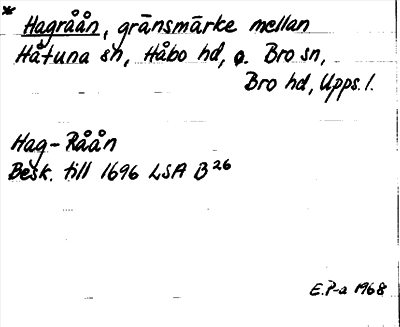 * Hagråån, gränsmärke mellan
Håtuna sn, Håbo hd, o. Bro sn,
Bro hd, Upps. l.
Hag-Råån
Besk. till 1696 LSA B 26
E.P-a 1968